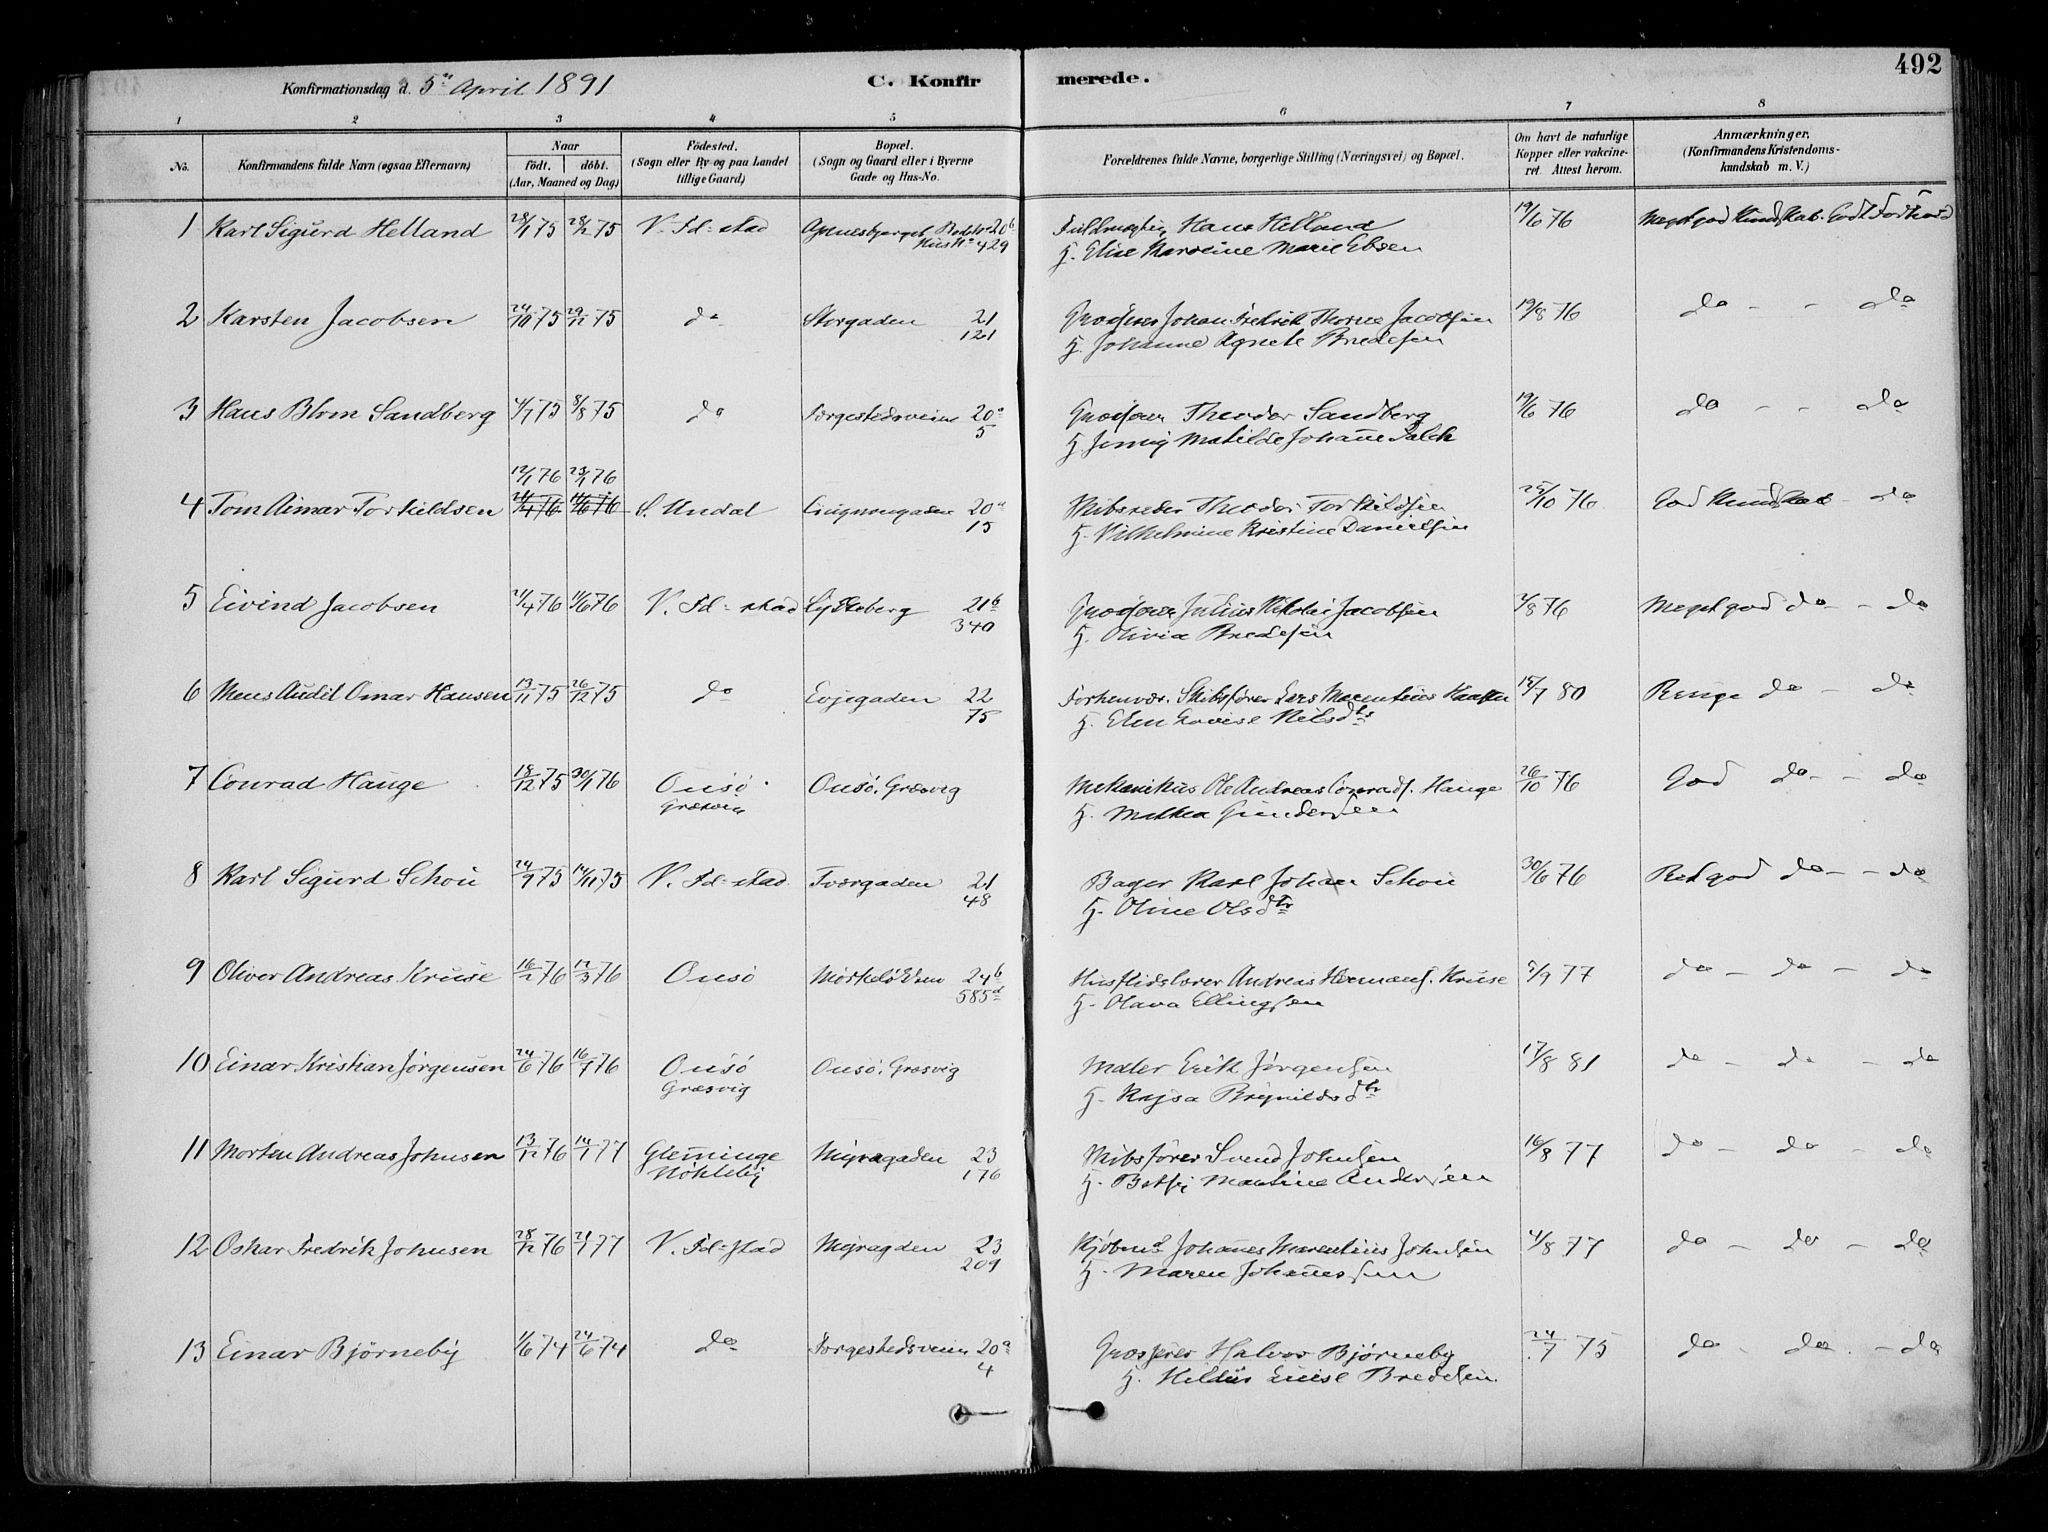 492
Konfirmationsdag d. 5te April 1891
C. Konfirmerede.
1 2 3 4 5 6 7 8
No.
Konfirmandens fulde Navn (ogsaa Efternavn)
Naar
födt. döbt.
(Aar, Maaned og Dag)
Födested.
(Sogn eller By og paa Landet
tillige Gaard)
Bopæl.
(Sogn og Gaard eller i Byerne
Gade og Hus-No.
Forældrenes fulde Navne, borgerlige Stilling (Næringsvei) og Bopæl.
Om havt de naturlige
Kopper eller vakcine-
ret. Attest herom.
Anmærkninger,
(Konfirmandens Kristendoms-
kundskab m. V.)
1 Karl Sigurd Helland 28/1 75 28/2 75 V. Fd-stad 20b Hans Helland 19/6 76 Meget god Kundskab. Godt Forhold
429 H. Elise Marie Ebsen
2 Karsten Jacobsen 24/10 75 29/12 75 do Storgaden 21 Johan Fredrik Thorne Jacobsen 19/8 76 do - - do
121 H. Johanne Agnete Bredesen
3 Hans Blom Sandberg 4/7 75 8/8 75 do Torgestedsveien 20a Theodor Sandberg 19/6 76 do - - do
5 H. Jenny Matilde Johanne Falck
12/1 76 23/1 76
4 Tom Aimar Torkildsen 21/4 76 11/6 76 S. Undal 20a Skibsreder Theodor Torkildsen 25/10 76 God Kundskab - do
15 H. Vilhelmine Kristine Danielsen
5 Eivind Jacobsen 21/4 76 11/6 76 V. Fd-stad Lykkeberg 21b Julius Nikolai Jacobsen 2/8 76 Meget god do - do
340 H. Olivia Bredesen
6 Mens Audil Omar Hansen 13/11 75 26/12 75 do Evjegaden 22 Forhenvær. Skibsfører Lars Marentius Hansen 15/7 80 do - do
75 H. Elen Lovise Nilsdtr
7 Conrad Hauge 18/12 75 30/1 76 Onsö Onsö. Græsvig Mekanikus Ole Andreas Conrads. Hauge 26/10 76 God do - - do
H. Mathea Gundersen
8 Karl Sigurd Schou 24/9 75 14/11 75 V. Fd-stad Tværgaden 21 Bager Karl Johan Schou 30/6 76 Ret god do - - do
48 H. Oline Olsdtr
9 Oliver Andreas Kruse 16/2 76 12/3 76 Onsö 24b Husflidslærer Andreas Hermans. Kruse 5/9 77 do - do - do
585d H. Olava Ellingsen
10 Einar Kristian Jørgensen 24/6 76 16/7 76 Onsö Onsö. Græsvig Maler Erik Jørgensen 17/8 81 do - do - do
Græsvig H. Kajsa Brynildsdtr
11 Morten Andreas Johnsen 13/12 76 14/1 77 Glemminge Myragaden 23 Skibsfører Svend Johnsen 16/8 77 do - do - do
Nökleby 176 H. Betsy Martine Andersen
12 Oskar Fredrik Johnsen 28/12 76 21/1 77 V. Fd-stad Myragden 23 Kjøbmd Johannes Marentius Johnsen 4/8 77 do - do - do
209 H. Maren Johannessen
13 Einar Bjørneby 1/6 74 24/6 74 do Torgestedsveien 20a Grosserer Halvor Bjørneby 24/7 75 do - do - do
4 H. Hildur Bredesen